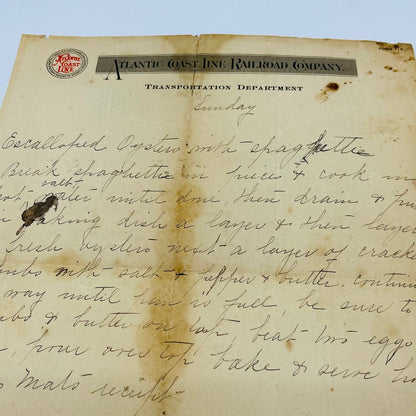 Atlantic Coast Line
Atlantic Coast Line Railroad Company.
Transportation Department
Sunday
Escalloped Oysters with spaghettie
Break spaghettie in pieces & cook in
salt
water until done, then drain &
baking dish a layer & then layer
fresh oysters next a layer of cracker
with salt & pepper & butter. continue
way until is full be sure to
& butter on top beat two eggs
pour over top bake & serve
receipt